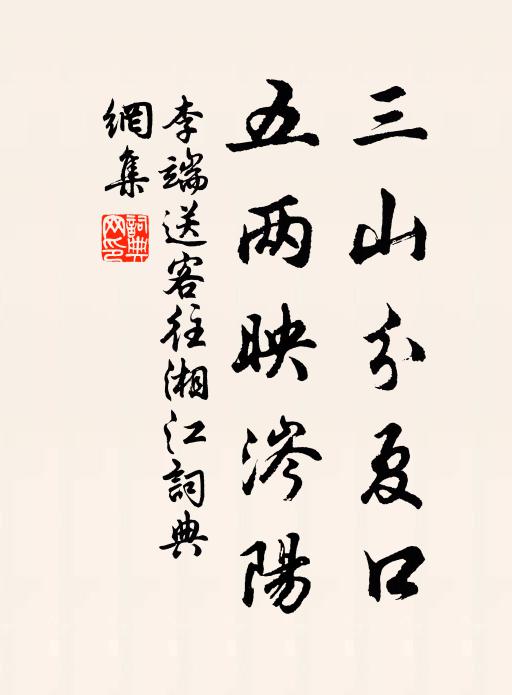 三山分夏口
五兩映涔陽
李端送客往湘江詞典
網集
詞典
网印